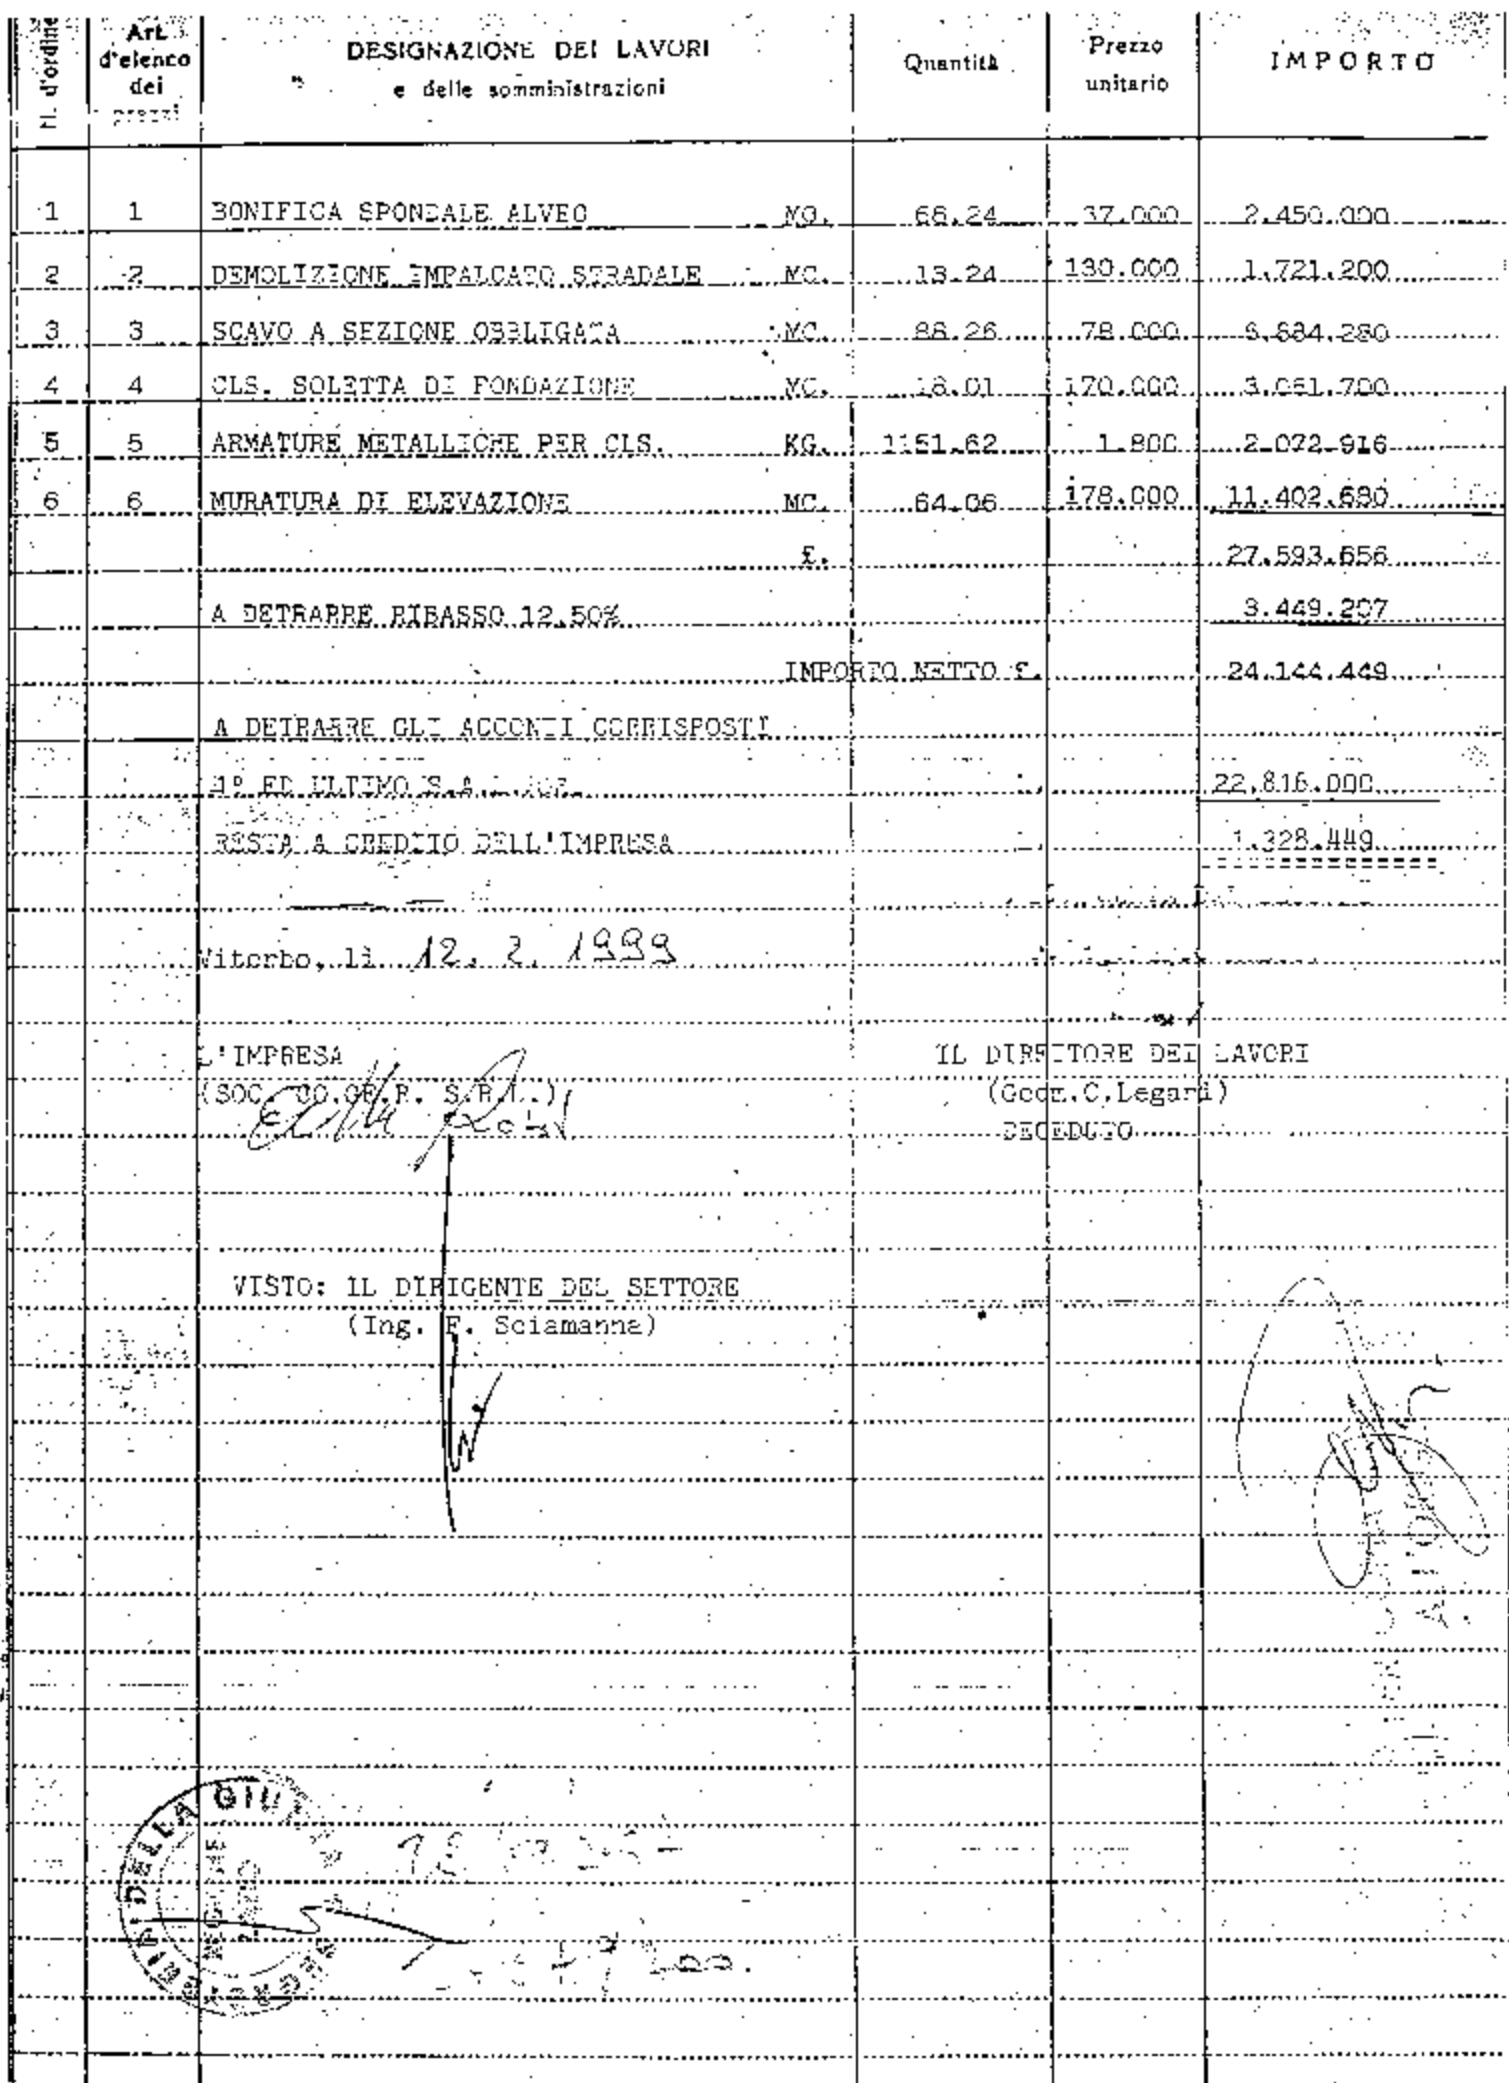 N. d'ordine Art. d'elenco dei prezzi DESIGNAZIONE DEI LAVORI e delle somministrazioni Quantità Prezzo unitario IMPORTO
1 1 BONIFICA SPONDALE ALVEO MQ. 66.24 37.000 2.450.000
2 2 DEMOLIZIONE IMPALCATO STRADALE MC. 13.24 130.000 1.721.200
3 3 SCAVO A SEZIONE OBBLIGATA MC. 88.26 78.000 6.884.280
4 4 CLS. SOLETTA DI FONDAZIONE MC. 18.01 170.000 3.061.700
5 5 ARMATURE METALLICHE PER CLS. KG. 1151.62 1.800 2.072.916
6 6 MURATURA DI ELEVAZIONE MC. 64.06 178.000 11.402.680
£. 27.593.656
A DETRARRE RIBASSO 12.50% 3.449.207
IMPORTO NETTO £. 24.144.449
A DETRARRE GLI ACCONTI CORRISPOSTI
1° ED ULTIMO S.A.L. 22.816.000
RESTA A CREDITO DELL'IMPRESA 1.328.449
Viterbo, lì 12. 2. 1999
L'IMPRESA IL DIRETTORE DEI LAVORI
(SOC. CO.GE.R. S.R.L.) (Geom.C.Legari)
DECEDUTO
VISTO: IL DIRIGENTE DEL SETTORE
(Ing. F. Sciamanna)
DELLA GIU